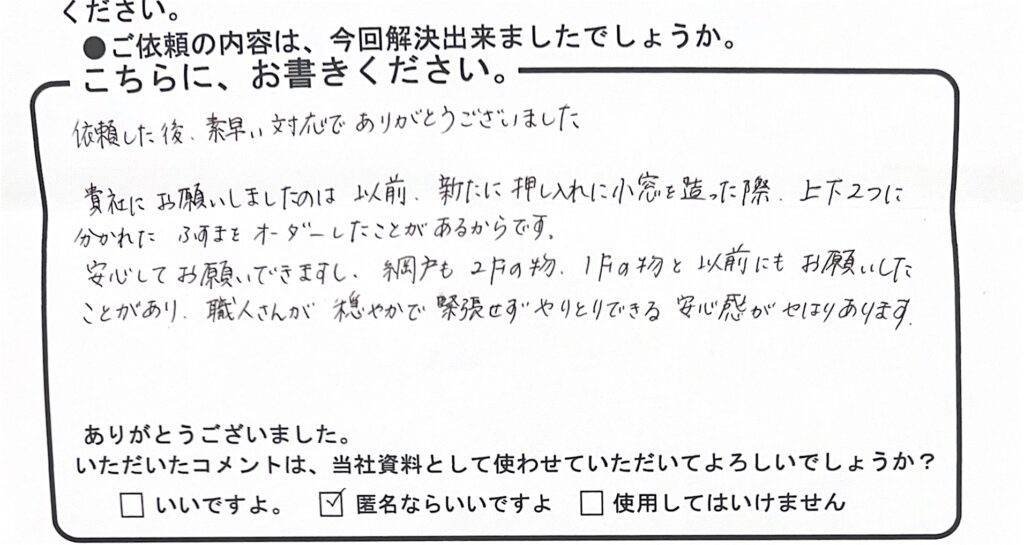 ください。
●ご依頼の内容は、今回解決出来ましたでしょうか。
こちらに、お書きください。
依頼した後、素早い対応でありがとうございました
貴社にお願いしましたのは以前、新たに押し入れに小窓を造った際、上下2つに
分かれたふすまをオーダーしたことがあるからです。
安心してお願いできますし、網戸も2Fの物、1Fの物と以前にもお願いした
ことがあり、職人さんが穏やかで緊張せずやりとりできる安心感がやはりあります。
ありがとうございました。
いただいたコメントは、当社資料として使わせていただいてよろしいでしょうか？
□ いいですよ。 ☑ 匿名ならいいですよ □ 使用してはいけません